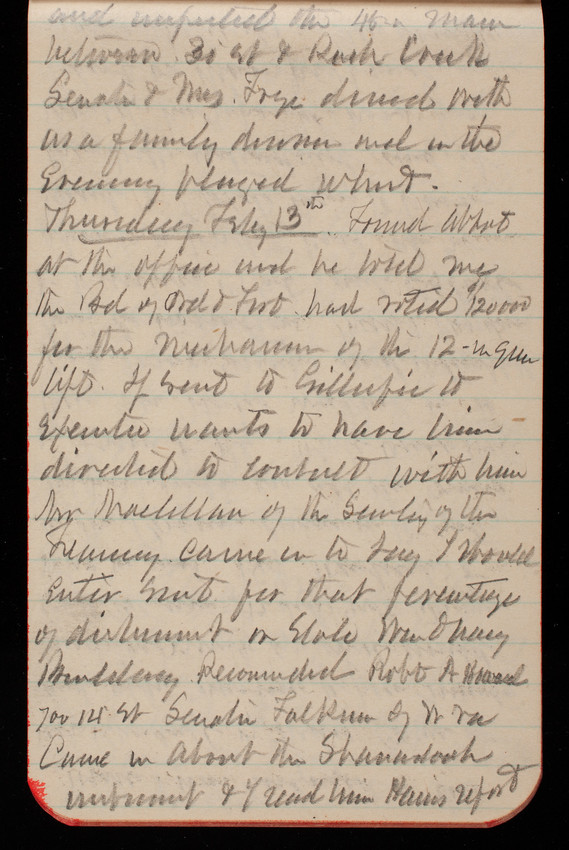 and inspected the 48 in main
between 30 St & Rock Creek
Senator & Mrs. Frye dined with
us a family dinner and in the
Evening played whist.
Thursday Feby 13th. Found Abbot
at the office and he told me
the Bd of Ord & Fort had voted 120000
for the mechanism of the 12-in gun
lift. If sent to Gillespie to
Execute wants to have him
directed to consult with him
Mr Maclellan of the Secty of the
Treasury came in to say I should
Enter suit for that percentage
of disbursement on State War & Navy
Building Recommended Robt A Howard
700 14 St Senator Faulkner of W Va
Came in about the Shanandoah
&  I read him Hains report